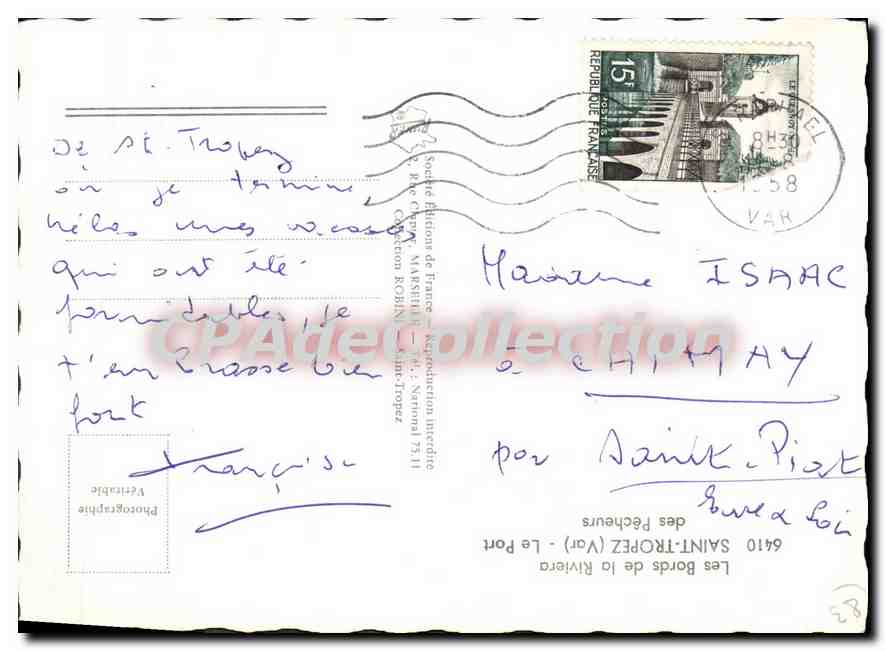 De St-Tropez
où je termine,
hélas mes vacances
qui ont été
formidables, je
t'embrasse bien
fort
Françoise
Photographie
Véritable
Société Editions de France — Reproduction interdite
2, Rue MARSEILLE — Tél. : National 75.11
Collection ROBIN — Saint-Tropez
15F
POSTES
REPUBLIQUE FRANÇAISE
1958
VAR
Madame ISAAC
à
par Saint-Piat
Eure & Loir
Les Bords de la Riviera
6410 SAINT-TROPEZ (Var) - Le Port
des Pêcheurs
CPAdeCollection